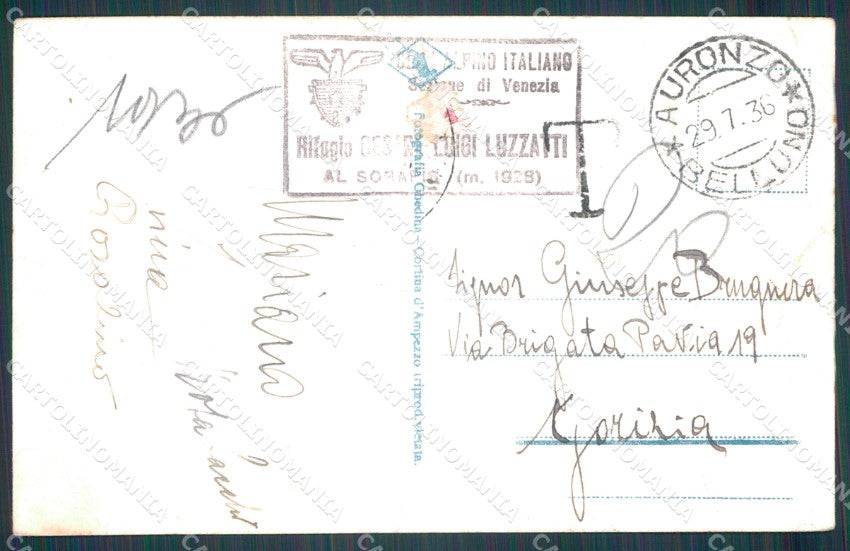 CLUB ALPINO ITALIANO
Sezione di Venezia
Rifugio CESARE LUIGI LUZZATTI
AL SORAPIS (m. 1928)
AURONZO * BELLUNO *
29.7.36
T
Signor Giuseppe Brugnera
Via Brigata Pavia 19
Gorizia
Fotografia Ghedina - Cortina d'Ampezzo (riprod. vietata.
Mariano
nina
Rosolino
CARTOLINOMANIA